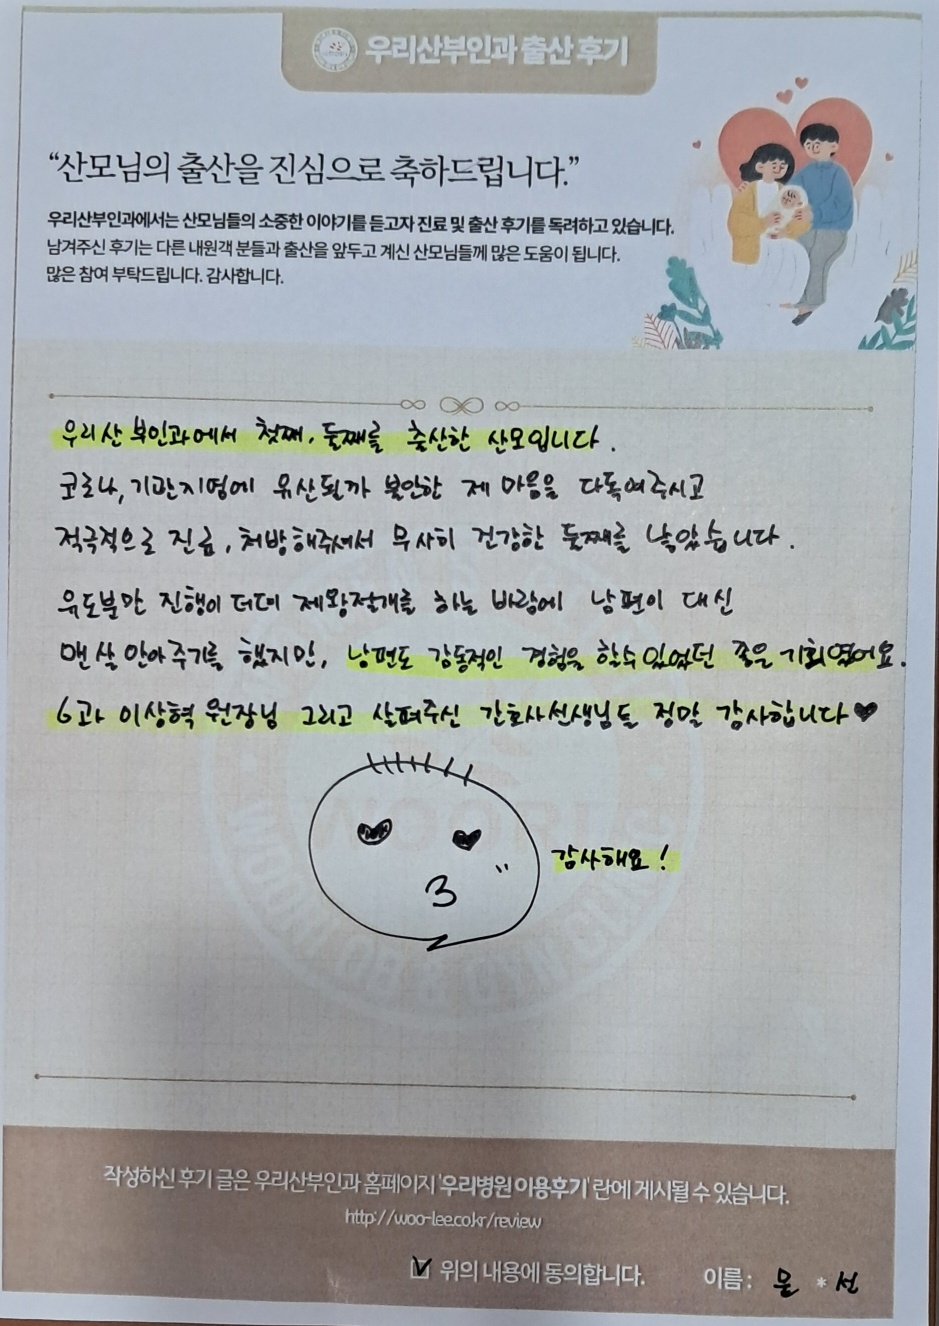 우리산부인과 출산 후기
“산모님의 출산을 진심으로 축하드립니다.”
우리산부인과에서는 산모님들의 소중한 이야기를 듣고자 진료 및 출산 후기를 독려하고 있습니다.
남겨주신 후기는 다른 내원객 분들과 출산을 앞두고 계신 산모님들께 많은 도움이 됩니다.
많은 참여 부탁드립니다. 감사합니다.
우리산부인과에서 첫째, 둘째를 출산한 산모입니다.
코로나, 기관지염에 유산될까 불안한 제 마음을 다독여주시고
적극적으로 진료, 처방해주셔서 무사히 건강한 둘째를 낳았습니다.
유도분만 진행이 더뎌 제왕절개를 하는 바람에 남편이 대신
맨살 안아주기를 했지만, 남편도 감동적인 경험을 할수있었던 좋은 기회였어요.
6과 이상혁 원장님 그리고 살펴주신 간호사선생님들 정말 감사합니다♥
감사해요!
작성하신 후기 글은 우리산부인과 홈페이지 '우리병원 이용후기' 란에 게시될 수 있습니다.
http://woo-lee.co.kr/review
위의 내용에 동의합니다. 이름 : 문 * 선